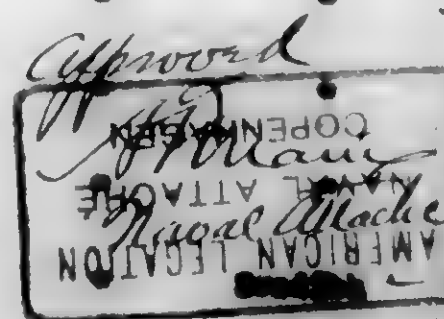 Approved
Naval Attaché
AMERICAN LEGATION
NAVAL ATTACHE
COPENHAGEN